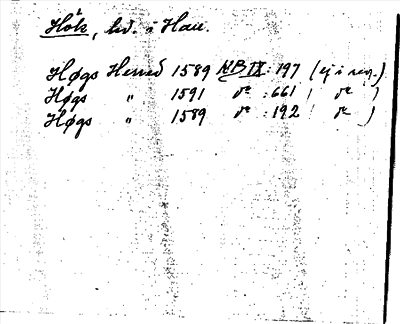 Hök, hd. i Hall.
Høgs Herred 1589 NB IX: 197 (ej i reg.)
Høgs " 1591 do : 661 ( do )
Høgs " 1589 do : 192 ( do )